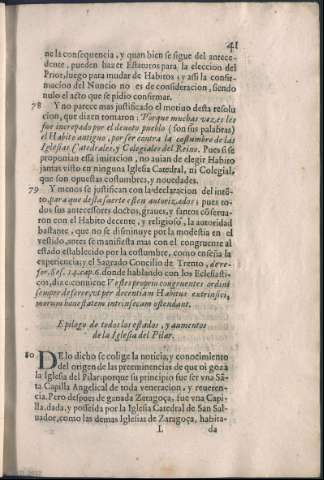 41
ne la consequencia, y quan bien se sigue del antece-
dente, pueden hazer Estatutos para la eleccion del
Prior, luego para mudar de Habitos; y assi la confir-
macion del Nuncio no es de consideracion, siendo
nulo el acto que se pidio confirmar.
78 Y no parece mas justificado el motiuo desta resolu
cion, que dizen tomaron: Porque muchas vezes les
fue increpado por el deuoto pueblo (son sus palabras)
el Habito antiguo, por ser contra la costumbre de las
Iglesias Catedrales, y Colegiales del Reino. Pues si se
proponian essa imitacion, no auian de elegir Habito
jamas visto en ninguna Iglesia Catedral, ni Colegial,
que son opuestas costumbres, y nouedades.
79 Y menos se justifican con la declaracion del inten-
to, para que desta suerte esten autorizados; pues to-
dos sus antecessores doctos, graues, y santos obserua-
ron con el Habito decente, y religioso, la autoridad
bastante, que no se disminuye por la modestia en el
vestido, antes se manifiesta mas con el congruente al
estado establecido por la costumbre, como enseña la
experiencia; y el Sagrado Concilio de Trento, de re-
for. Ses. 14. cap. 6. donde hablando con los Eclesiasti-
cos, dize: Vestes proprio congruentes ordini
semper deferre, vt per decentiam Habitus extrinseci,
morum honestatem intrinsecam ostendant.
Epilogo de todos los estados, y aumentos
de la Iglesia del Pilar.
80 DE lo dicho se colige la noticia, y conocimiento
del origen de las preeminencias de que oi goza
la Iglesia del Pilar: porque su principio fue ser vna Sã-
ta Capilla Angelical de toda veneracion, y reueren-
cia. Pero despues de ganada Zaragoça, fue vna Capi-
lla, dada, y posseida por la Iglesia Catedral de San Sal-
uador, como las demas Iglesias de Zaragoça, habita-
L da